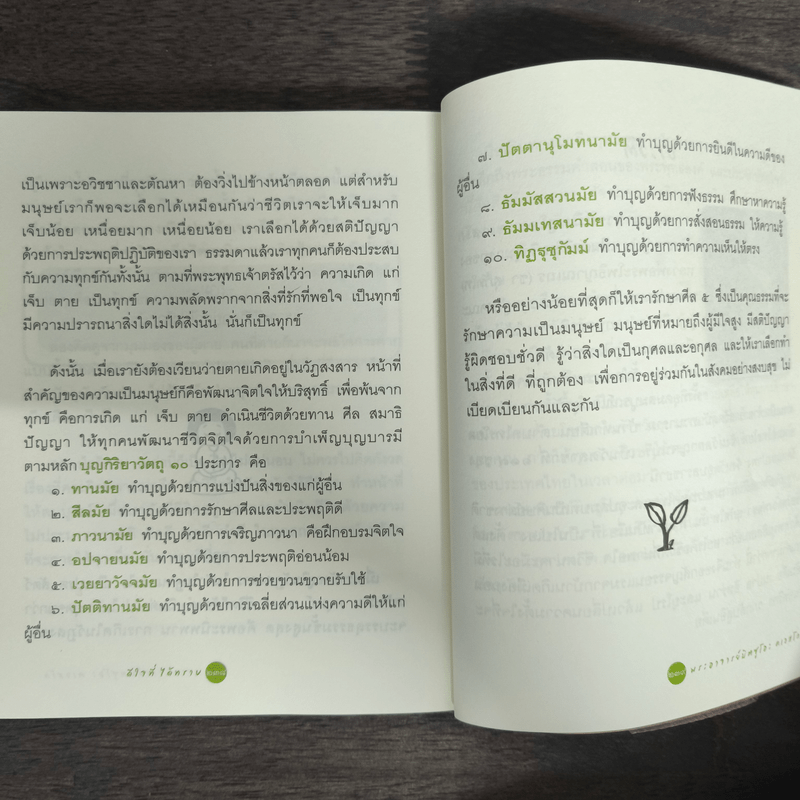 เป็นเพราะอวิชชาและตัณหา ต้องวิ่งไปข้างหน้าตลอด แต่สำหรับ
มนุษย์เราก็พอจะเลือกได้เหมือนกันว่าชีวิตเราจะให้เจ็บมาก
เจ็บน้อย เหนื่อยมาก เหนื่อยน้อย เราเลือกได้ด้วยสติปัญญา
ด้วยการประพฤติปฏิบัติของเรา ธรรมดาแล้วเราทุกคนก็ต้องประสบ
กับความทุกข์กันทั้งนั้น ตามที่พระพุทธเจ้าตรัสไว้ว่า ความเกิด แก่
เจ็บ ตาย เป็นทุกข์ ความพลัดพรากจากสิ่งที่รักที่พอใจ เป็นทุกข์
มีความปรารถนาสิ่งใดไม่ได้สิ่งนั้น นั่นก็เป็นทุกข์
ดังนั้น เมื่อเรายังต้องเวียนว่ายตายเกิดอยู่ในวัฏสงสาร หน้าที่
สำคัญของความเป็นมนุษย์ก็คือพัฒนาจิตใจให้บริสุทธิ์ เพื่อพ้นจาก
ทุกข์ คือการเกิด แก่ เจ็บ ตาย ดำเนินชีวิตด้วยทาน ศีล สมาธิ
ปัญญา ให้ทุกคนพัฒนาชีวิตจิตใจด้วยการบำเพ็ญบุญบารมี
ตามหลักบุญกิริยาวัตถุ ๑๐ ประการ คือ
๑. ทานมัย ทำบุญด้วยการแบ่งปันสิ่งของแก่ผู้อื่น
๒. สีลมัย ทำบุญด้วยการรักษาศีลและประพฤติดี
๓. ภาวนามัย ทำบุญด้วยการเจริญภาวนา คือฝึกอบรมจิตใจ
๔. อปจายนมัย ทำบุญด้วยการประพฤติอ่อนน้อม
๕. เวยยาวัจจมัย ทำบุญด้วยการช่วยขวนขวายรับใช้
๖. ปัตติทานมัย ทำบุญด้วยการเฉลี่ยส่วนแห่งความดีให้แก่
ผู้อื่น
ดีใจที่ได้คราย ๒๓๘
๗. ปัตตานุโมทนามัย ทำบุญด้วยการยินดีในความดีของ
ผู้อื่น
๘. ธัมมัสสวนมัย ทำบุญด้วยการฟังธรรม ศึกษาหาความรู้
๙. ธัมมเทสนามัย ทำบุญด้วยการสั่งสอนธรรม ให้ความรู้
๑๐. ทิฏฐุชุกัมม์ ทำบุญด้วยการทำความเห็นให้ตรง
หรืออย่างน้อยที่สุดก็ให้เรารักษาศีล ๕ ซึ่งเป็นคุณธรรมที่จะ
รักษาความเป็นมนุษย์ มนุษย์ที่หมายถึงผู้มีใจสูง มีสติปัญญา
รู้ผิดชอบชั่วดี รู้ว่าสิ่งใดเป็นกุศลและอกุศล และให้เราเลือกทำ
ในสิ่งที่ดี ที่ถูกต้อง เพื่อการอยู่ร่วมกันในสังคมอย่างสงบสุข ไม่
เบียดเบียนกันและกัน
๒๓๙ พระอาจารย์มิตซูโอะ